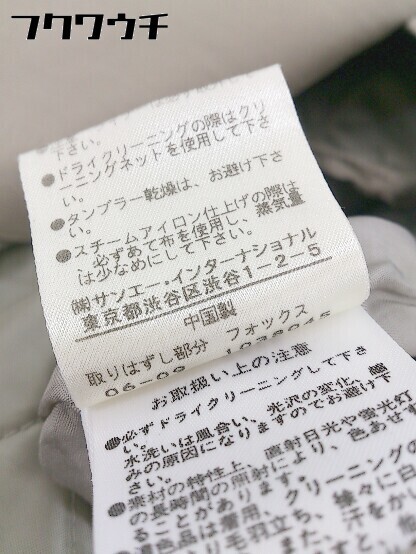 フクワウチ
下さい。
●ドライクリーニングの際はクリ
ーニングネットを使用して下さ
い。
●タンブラー乾燥は、お避け下さ
い。
●スチームアイロン仕上げの際は
必ずあて布を使用し、蒸気量
は少なめにして下さい。
㈱サンエー・インターナショナル
東京都渋谷区渋谷1-2-5
中国製
取りはずし部分 フォックス
お取扱い上の注意
●必ずドライクリーニングして下さ
水洗いは風合い、光沢の変化、縮
みの原因になりますのでお避け下
さい。
●素材の特性上、直射日光や蛍光灯
の長時間の照射により、色あせす
ることがあります。
●濃色品は着用、クリーニングの
徐々に白
り毛羽立ち、
汗をか